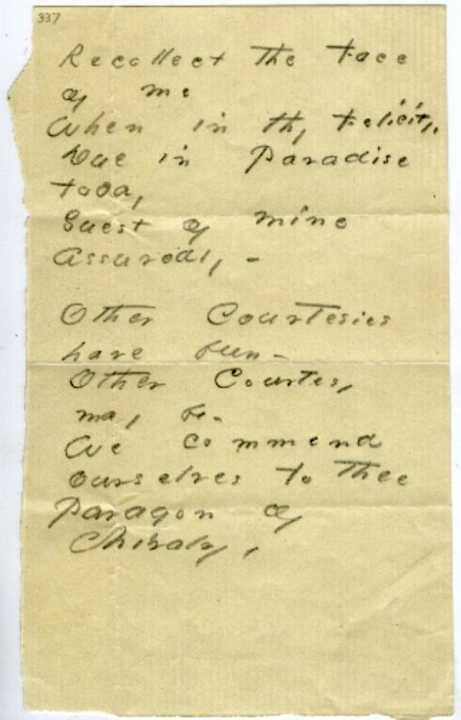 337
Recollect the Face
of me
When in thy Felicity,
Due in Paradise
today
Guest of mine
assuredly -
Other Courtesies
have been -
Other Courtesy
may be -
We commend
ourselves to thee
Paragon of
Chivalry,